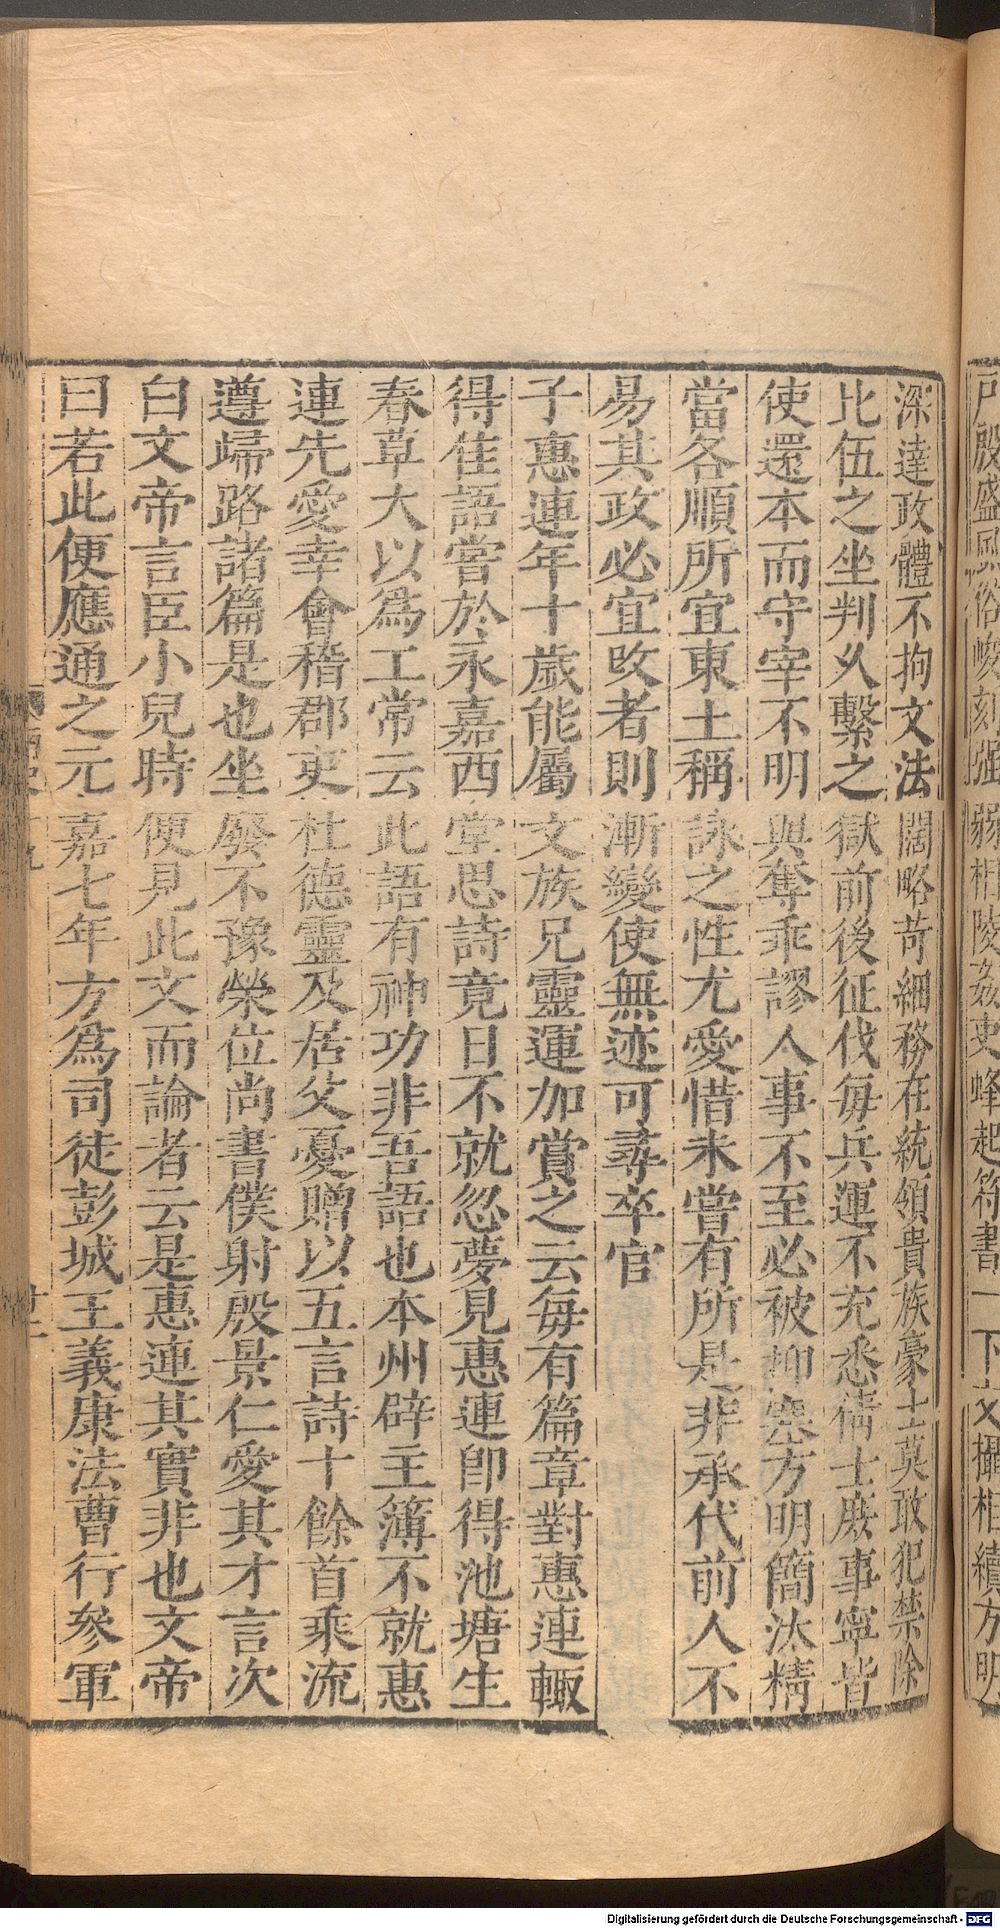 戶殷盛風俗峻刻强弱相陵姦吏蜂起符書一下文攝相續方明
深達政體不拘文法闊略苛細務在統領貴族豪士莫敢犯禁除
比伍之坐判久繫之獄前後征伐每兵運不充悉倩士庶事寧皆
使還本而守宰不明與奪乖謬人事不至必被抑塞方明簡汰精
當各順所宜東土稱詠之性尤愛惜未嘗有所是非承代前人不
易其政必宜改者則漸變使無迹可尋卒官
子惠連年十歲能屬文族兄靈運加賞之云每有篇章對惠連輙
得佳語嘗於永嘉西堂思詩竟日不就忽夢見惠連卽得池塘生
春草大以爲工常云此語有神功非吾語也本州辟主簿不就惠
連先愛幸會稽郡吏杜德靈及居父憂贈以五言詩十餘首乘流
遵歸路諸篇是也坐廢不豫榮位尚書僕射殷景仁愛其才言次
白文帝言臣小兒時便見此文而論者云是惠連其實非也文帝
曰若此便應通之元嘉七年方爲司徒彭城王義康法曹行參軍
Digitalisierung gefördert durch die Deutsche Forschungsgemeinschaft - DFG